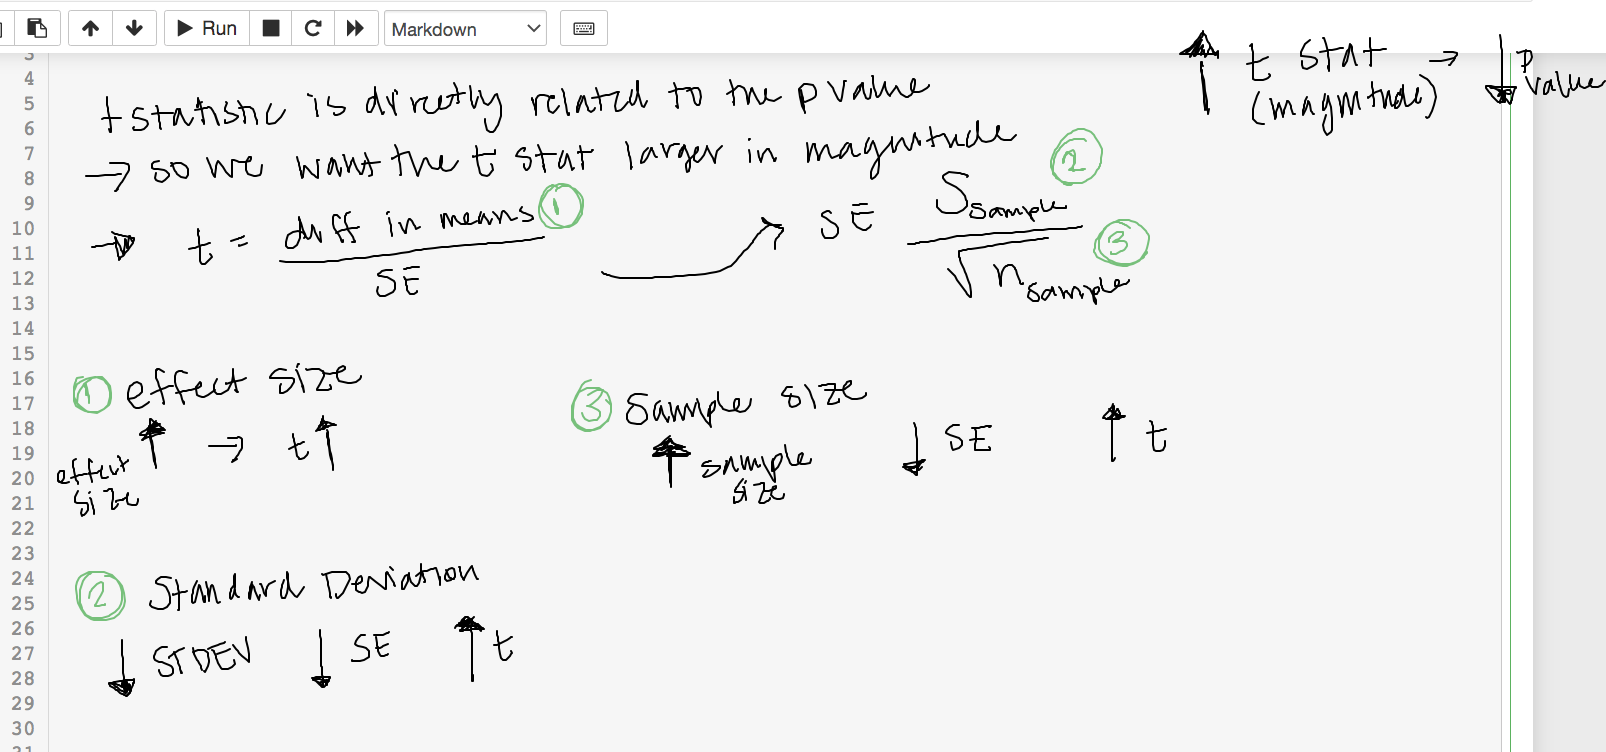 Run Markdown
↑ t stat → ↓ p value
(magnitude)
3
4
5
6
7
8
9
10
11
12
13
14
15
16
17
18
19
20
21
22
23
24
25
26
27
28
29
30
31
t statistic is directly related to the p value
→ so we want the t stat larger in magnitude
→ t = diff in means ①
SE
SE
S sample ②
√n sample ③
① effect size
effect size ↑ → t ↑
③ Sample size
↑ sample size ↓ SE ↑ t
② Standard Deviation
↓ STDEV ↓ SE ↑ t